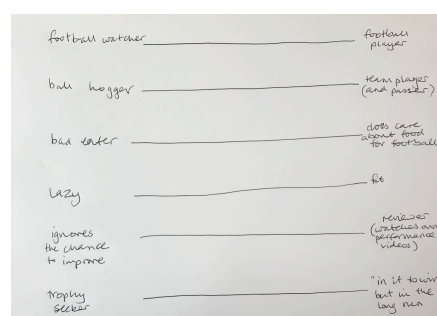 football watcher
football
player
ball hogger
team player
(and passer)
bad eater
does care
about food
for football
Lazy
fit
ignores
the chance
to improve
reviewer
(watches own
performance
videos)
trophy
seeker
"in it to win
but in the
long run